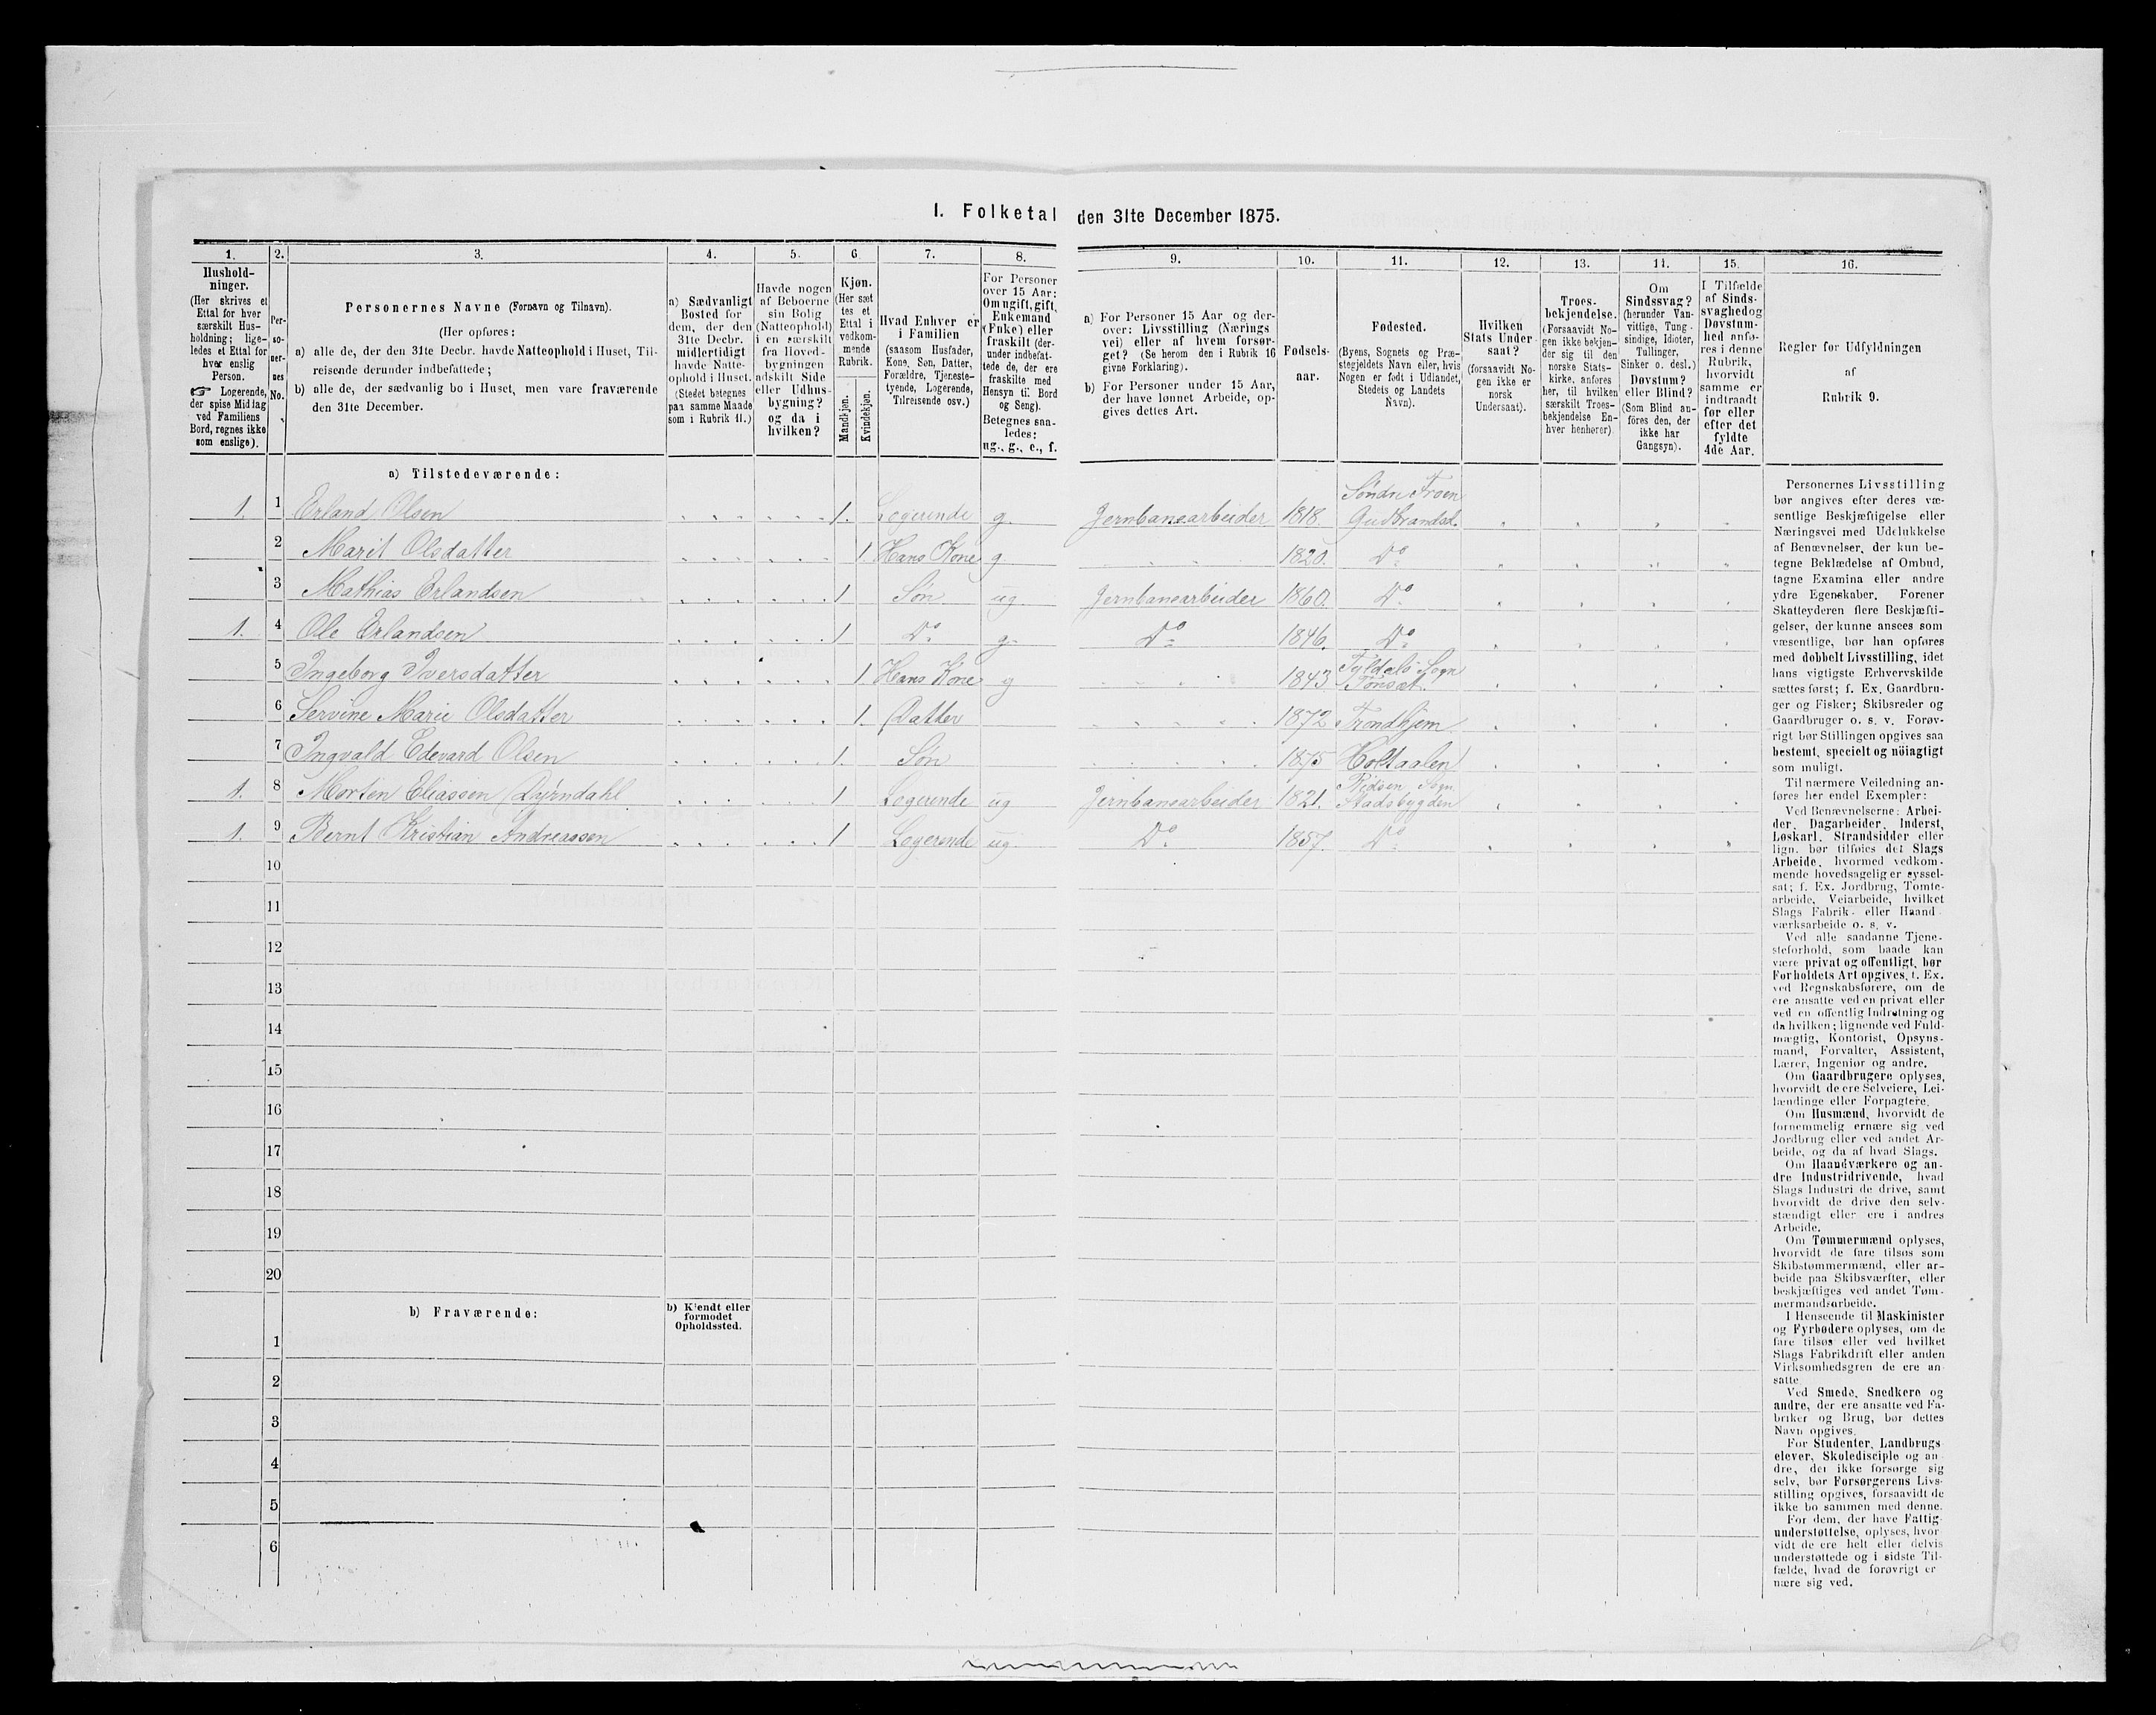 I. Folketal den 31te December 1875.
1. 2. 3. 4. 5. 6 7. 8. 9. 10. 11. 12. 13. 14. 15. 16.
Hushold-
ninger.
(Her skrives et
Ettal for hver
særskilt Hus-
holdning; lige-
ledes et Ettal for
hver enslig
Person.
☞ Logerende,
der spise Middag
ved Familiens
Bord, regnes ikke
som enslige).
Per-
so-
ner-
nes
No.
Personernes Navne (Fornavn og Tilnavn).
(Her opføres:
a) alle de, der den 31te Decbr. havde Natteophold i Huset, Til-
reisende derunder indbefattede;
b) alle de, der sædvanlig bo i Huset, men vare fraværende
den 31te December.
a) Sædvanligt
Bosted for
dem, der den
31te Decbr.
midlertidigt
havde Natte-
ophold i Huset.
(Stedet betegnes
paa samme Maade
som i Rubrik 11.)
Havde nogen
af Beboerne
sin Bolig
(Natteophold)
i en særskilt
fra Hoved-
bygningen
adskilt Side
eller Udhus-
bygning?
og da i
hvilken?
Kjøn.
(Her sæt
tes et
Ettal i
vedkom-
mende
Rubrik.
Mandkjøn.
Kvindekjøn.
Hvad Enhver er
i Familien
(saasom Husfader,
Kone, Søn, Datter,
Forældre, Tjeneste-
tyende, Logerende,
Tilreisende osv.)
For Personer
over 15 Aar:
Om ugift, gift,
Enkemand
(Enke) eller
fraskilt (der-
under indbefat-
tede de, der ere
fraskilte med
Hensyn til Bord
og Seng).
Betegnes saa-
ledes:
ug., g., e., f.
a) For Personer 15 Aar og der-
over: Livsstilling (Nærings
vei) eller af hvem forsør-
get? (Se herom den i Rubrik 16
givne Forklaring).
b) For Personer under 15 Aar,
der have lønnet Arbeide, op-
gives dettes Art.
Fødsels-
aar.
Fødested.
(Byens, Sognets og Præ-
stegjeldets Navn eller, hvis
Nogen er født i Udlandet,
Stedets og Landets
Navn).
Hvilken
Stats Under
saat?
(forsaavidt No-
gen ikke er
norsk
Undersaat).
Troes-
bekjendelse.
(Forsaavidt No-
gen ikke bekjen-
der sig til den
norske Stats-
kirke, anføres
her, til hvilken
særskilt Troes-
bekjendelse En-
hver henhører)
Om
Sindssvag?
(herunder Van-
vittige, Tung-
sindige, Idioter,
Tullinger,
Sinker o. desl.)
Døvstum?
eller Blind?
(Som Blind an-
føres den, der
ikke har
Gangsyn).
I Tilfælde
af Sinds-
svaghed og
Døvstum-
hed anfø-
res i denne
Rubrik,
hvorvidt
samme er
indtraadt
før eller
efter det
fyldte
4de Aar.
Regler for Udfyldningen
af
Rubrik 9.
a) Tilstedeværende:
1. 1 Erland Olsen 1. Logerende g. Jernbanearbeider 1818. Søndre Froen
Gudbrandsd.
2 Marit Olsdatter 1. Hans Kone g 1820. Do
3 Mathias Erlandsen 1 Søn ug. Jernbanearbeider 1860. Do
1. 4 Ole Erlandsen 1 Do g. Do 1846. Do
5 Ingeborg Iversdatter 1. Hans Kone g 1843 Tyldals Sogn
Tønsæt.
6 Servine Marie Olsdatter 1. Datter 1872 Trondhjem
7 Ingvald Edevard Olsen 1. Søn 1875 Holtaalen
1. 8 Morten Eliassen Dyrndahl 1 Logerende ug Jernbanearbeider 1821. Ridsen Sogn
Stadsbygden
1. 9 Bernt Kristian Andreassen 1 Logerende ug. Do 1857. Do
10
11
12
13
14
15
16
17
18
19
20
b) Fraværende:
b) Kjendt eller
formodet
Opholdssted.
1
2
3
4
5
6
Personernes Livsstilling
bør angives efter deres væ-
sentlige Beskjæftigelse eller
Næringsvei med Udelukkelse
af Benævnelser, der kun be-
tegne Beklædelse af Ombud,
tagne Examina eller andre
ydre Egenskaber. Forener
Skatteyderen flere Beskjæfti-
gelser, der kunne ansees som
væsentlige, bør han opføres
med dobbelt Livsstilling, idet
hans vigtigste Erhvervskilde
sættes først; f. Ex. Gaardbru-
ger og Fisker; Skibsreder og
Gaardbruger o. s. v. Forøv-
rigt bør Stillingen opgives saa
bestemt, specielt og nöiagtigt
som muligt.
Til nærmere Veiledning an-
føres her endel Exempler:
Ved Benævnelserne: Arbei-
der, Dagarbeider, Inderst,
Løskarl, Strandsidder eller
lign. bør tilføies det Slags
Arbeide, hvormed vedkom-
mende hovedsagelig er syssel-
sat; f. Ex. Jordbrug, Tomte-
arbeide, Veiarbeide, hvilket
Slags Fabrik- eller Haand-
værksarbeide o. s. v.
Ved alle saadanne Tjene-
steforhold, som baade kan
være privat og offentligt, bør
Forholdets Art opgives, f. Ex.
ved Regnskabsførere, om de
ere ansatte ved en privat eller
ved en offentlig Indretning og
da hvilken; lignende ved Fuld-
mægtig, Kontorist, Opsyns-
mand, Forvalter, Assistent,
Lærer, Ingeniør og andre.
Om Gaardbrugere oplyses,
hvorvidt de ere Selveiere, Lei-
lændinge eller Forpagtere.
Om Husmænd, hvorvidt de
fornemmelig ernære sig ved
Jordbrug eller ved andet Ar-
beide, og da af hvad Slags.
Om Haandværkere og an-
dre Industridrivende, hvad
Slags Industri de drive, samt
hvorvidt de drive den selv-
stændigt eller ere i andres
Arbeide.
Om Tømmermænd oplyses,
hvorvidt de fare tilsøs som
Skibstømmermænd, eller ar-
beide paa Skibsværfter, eller
beskjæftiges ved andet Tøm-
mermandsarbeide.
I Henseende til Maskinister
og Fyrbødere oplyses, om de
fare tilsøs eller ved hvilket
Slags Fabrikdrift eller anden
Virksomhedsgren de ere an-
satte.
Ved Smede, Snedkere og
andre, der ere ansatte ved Fa-
briker og Brug, bør dettes
Navn opgives.
For Studenter, Landbrugs
elever, Skoledisciple og an
dre, der ikke forsørge sig
selv, bør Forsørgerens Livs-
stilling opgives, forsaavidt de
ikke bo sammen med denne.
For dem, der have Fattig-
understøttelse, oplyses, hvor
vidt de ere helt eller delvis
understøttede og i sidste Til-
fælde, hvad de forøvrigt er
nære sig ved.